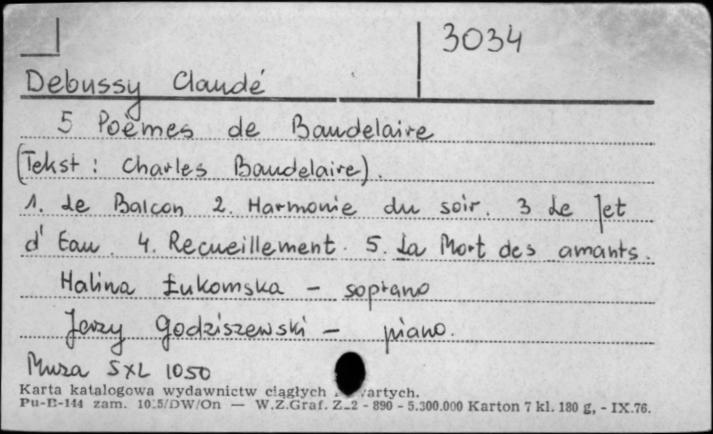 3034
Debussy Claudé
5 Poèmes de Baudelaire
(Tekst : Charles Baudelaire).
1. Le Balcon 2. Harmonie du soir. 3 Le Jet
d' Eau. 4. Recueillement. 5. La Mort des amants.
Halina Łukomska – soprano
Jerzy Godziszewski – piano.
Muza SXL 1050
Karta katalogowa wydawnictw ciągłych i zwartych.
Pu-B-144 zam. /DW/On — W.Z.Graf. Z-2 - 890 - 5.300.000 Karton 7 kl. 180 g, - IX.76.